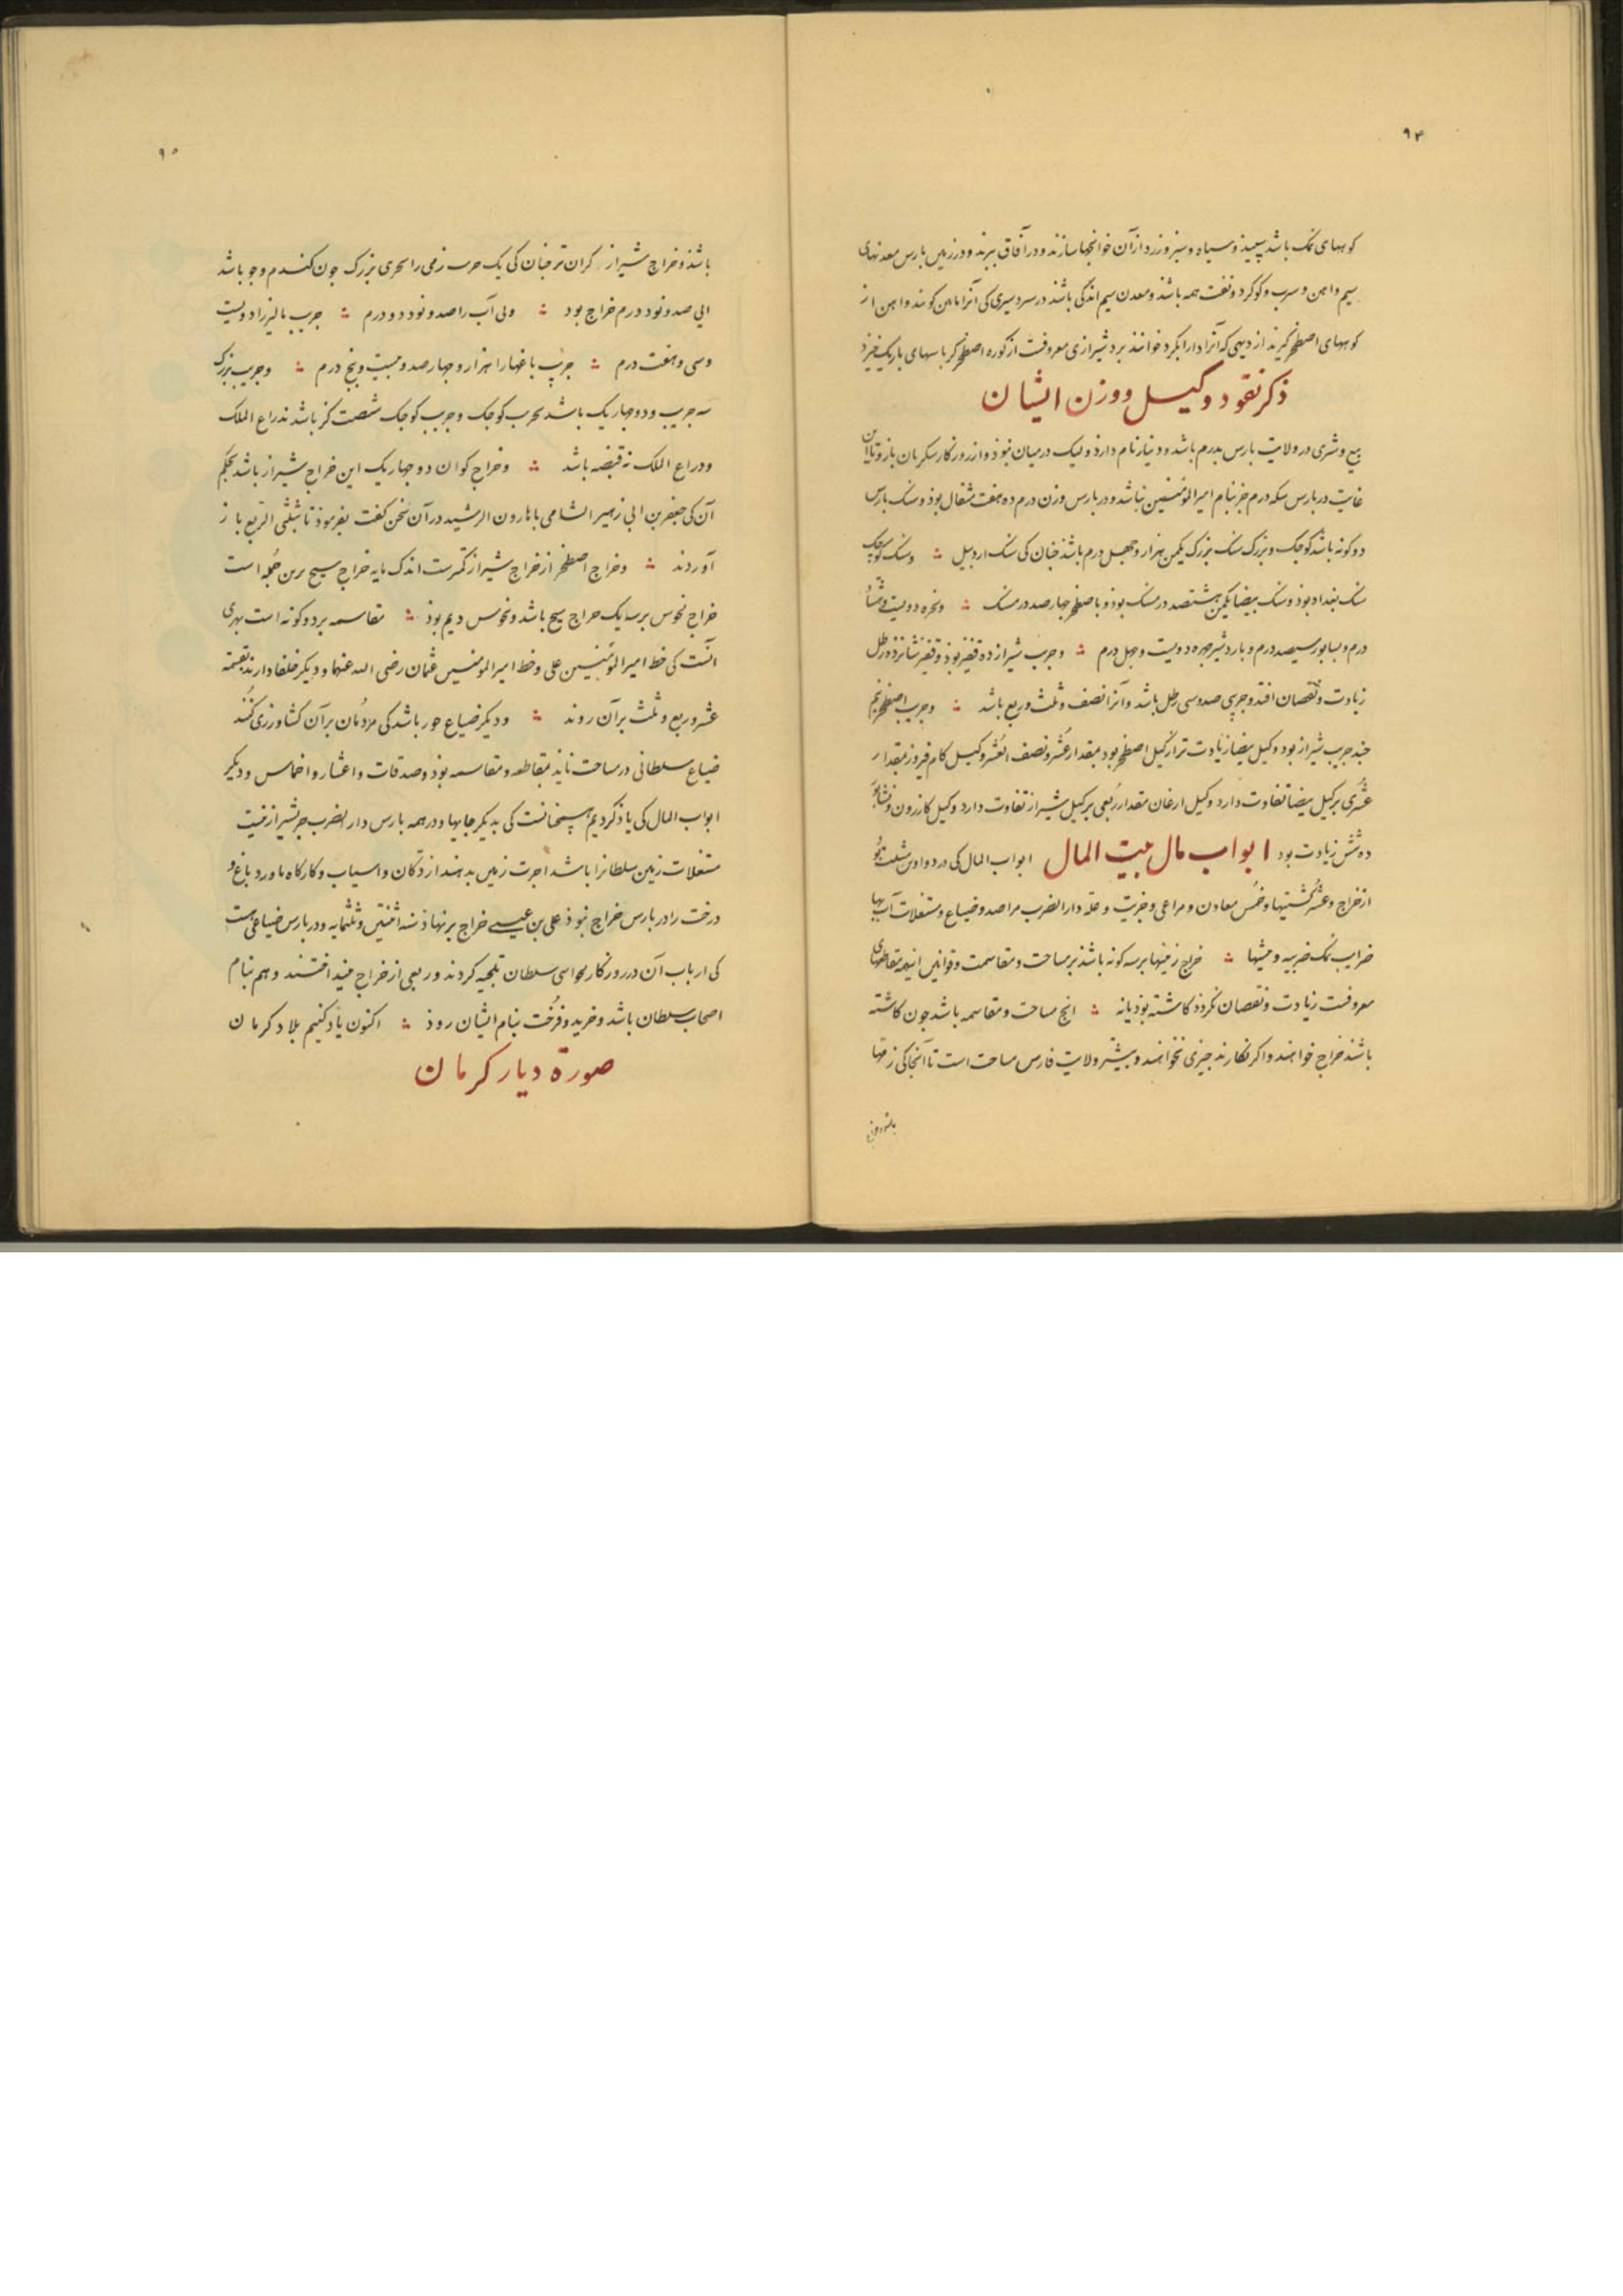 ۹۴
کوههای نمک باشد سپید و سیاه و سبز و زرد از آن خوانچها سازند و در آفاق ببرند و در زمین بارس معدنهای
سیم و اهن و سرب و کوکرد و نفت همه باشد و معدن سیم اندکی باشد در سردسیری کی آنرا کویند و اهن از
کوههای اصطخر خیزند از دیهی که آنرا دارابکرد خوانند برد شیرازی معروفست از کوره اصطخر کرباسهای باریک خیزد
ذکر نقود و کیل و وزن ایشان
بیع و شری در ولایت بارس بدرم باشد و دینار نام دارد ولیک در میان نبوذ و از روزکار سکریان باز و تا این
غایت در بارس سکه درم جز بنام امیر المؤمنین نباشد و در بارس وزن درم ده هفت مثقال بوذ و سنک بارس
دو کونه باشد کوجک و بزرک سنک بزرک یکمن هزار و چهل درم باشد چنان کی سنک اردبیل ؞ و سنک کوچک
سنک بغداد بوذ و سنک بیضا یکمن هشتصد درمسنک بوذ و باصطخر چهارصد درمسنک ؞ دویست و هشتاد
درم و بسابور سیصد درم و باردشیر دویست و چهل درم ؞ و جریب شیراز ده قفیز بوذ و قفیز شانزده رطل
زیادت و نقصان افتد و جریبی صد و سی رطل باشد و آنرا نصف و ثلث و ربع باشد ؞ و جریب اصطخر نیم
جریب شیراز بود و کیل بیضا زیادت تر از کیل اصطخر بود بمقدار عشر و نصف العشر و کیل کام فیروز بمقدار
عشری بر کیل بیضا تفاوت دارد و کیل ارغان مقدار ربعی بر کیل شیراز تفاوت دارد و کیل کازرون و
ده شش زیادت بود ابواب مال بیت المال ابواب المال کی در دواوین
از خراج و عشر کشتیها و خمس معادن و مراعی و جزیت و غله دار الضرب مراصد و ضیاع و مستغلات آب بها
ضرایب نمک ؞ خراج زمینها بر سه کونه باشد بر مساحت و مقاسمت و قوانین
معروفست زیادت و نقصان نکردد کاشته بوذ یا نه ؞ انچ مساحت و مقاسمه باشد جون کاشته
باشند خراج خواهند و اکر نکارند جیزی نخواهند و بیشتر ولایت فارس مساحت است تا آنجا کی زمها
۹۵
باشد و خراج شیراز کران تر جنان کی یک زمی را بزرک جون کندم و جو باشد
صد و نود درم خراج بود ؞ و بی آب را صد و نود دو درم ؞ جریب بالیز را دویست
و سی و هفت درم ؞ جریب باغها را هزار و چهار صد و بیست و پنج درم ؞ و جریب بزرک
سه جریب و دو چهاریک باشد بجریب کوجک و جریب کوجک شصت کز باشد بذراع الملک
و ذراع الملک نه قبضه باشد ؞ و خراج کوان دو چهاریک این خراج شیراز باشد بحکم
آن کی جعفر بن ابی زهیر الشامی با هارون الرشید در آن سخن کفت بفرموذ تا بثلثی الربع باز
آوردند ؞ و خراج اصطخر از خراج شیراز کمترست اندک مایه خراج سیح برین جمله است
خراج نخوس بر سه یک خراج سیح باشد و نخوس دیم بوذ ؞ مقاسمه بر دو کونه است بهری
آنست کی خط امیر المؤمنین علی و خط امیر المؤمنین عثمان رضی الله عنهما و دیکر خلفا دارند بقسمه
عشر و ربع و ثلث بر آن روند ؞ و دیکر ضیاع باشد کی مردمان بر آن کشاورزی کنند
ضیاع سلطانی در مساحت ناید بمقاطعه و مقاسمه بوذ و صدقات و اعشار و اخماس و دیکر
ابواب المال کی یاذ کردیم همچنانست کی بدیکر جایها و در همه بارس دار الضرب جز بشیراز نیست
مستغلات زمین سلطانرا باشد اجرت زمین بدهند از دکان و اسیاب و کارکاه ماورد باغ و
درخت را در بارس خراج نبوذ علی بن عیسی خراج برنهاذ سنه اثنتین و ثلثمایه و در بارس ضیاعی هست
کی ارباب آن در روزکار سلطان تلجیه کردند و ربعی از خراج بیفتد و هم بنام
اصحاب سلطان باشد و خرید و فرخت بنام ایشان روذ ؞ اکنون یاد کنیم بلاد کرمان
صورة دیار کرمان